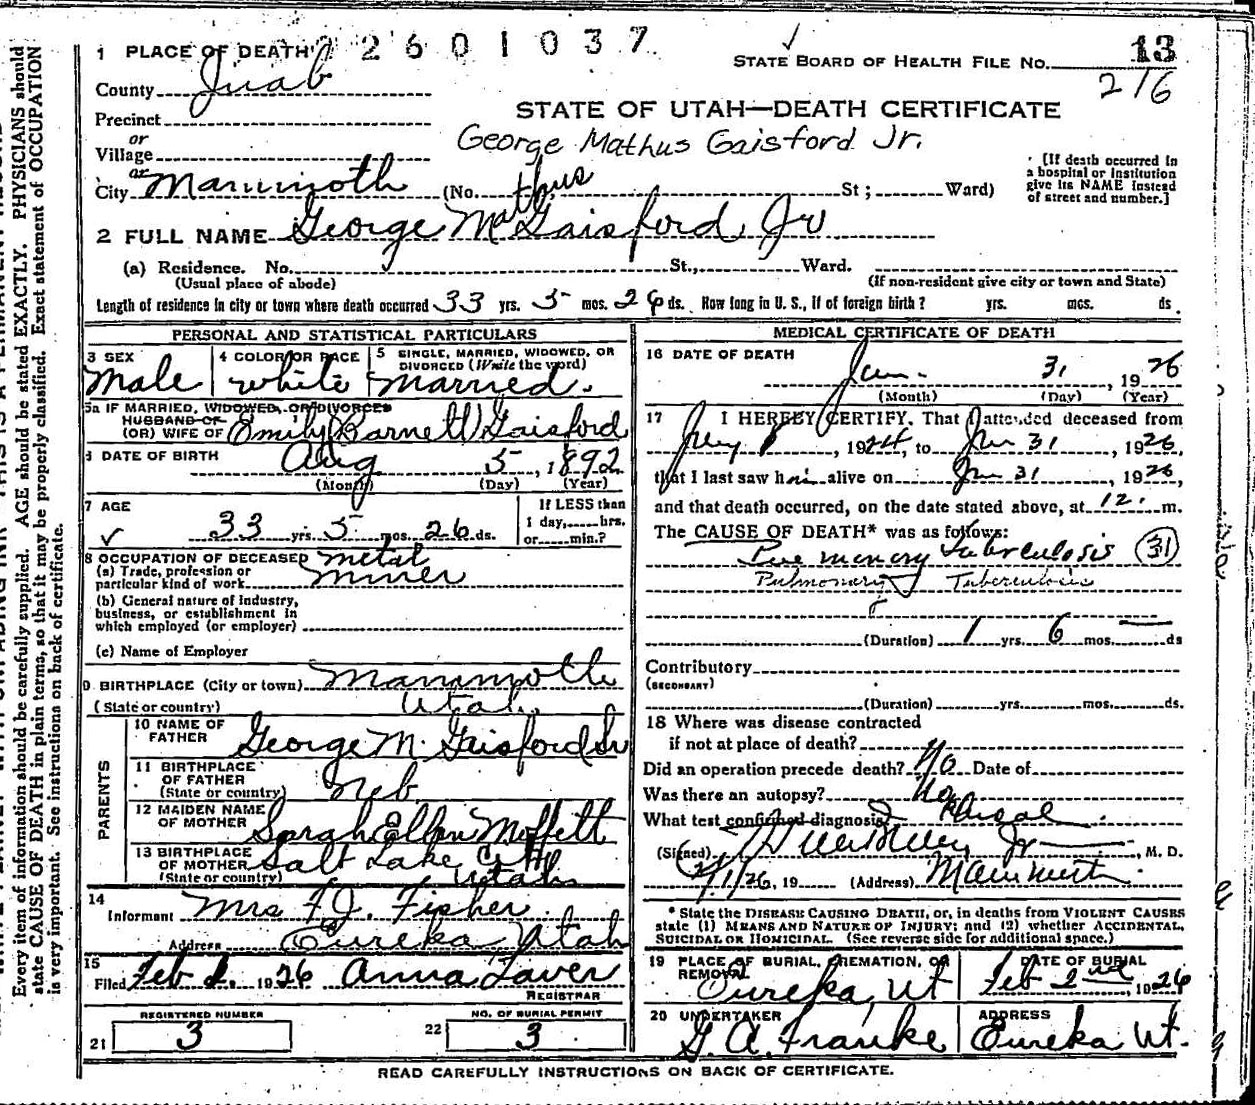 2601037
1 PLACE OF DEATH
STATE BOARD OF HEALTH FILE No. 13
216
County Juab
Precinct
or
Village
or
City Mammoth (No. St; Ward)
STATE OF UTAH—DEATH CERTIFICATE
George Mathus Gaisford Jr.
[If death occurred in
a hospital or institution
give its NAME instead
of street and number.]
thus
2 FULL NAME George Mathus Gaisford Jr
(a) Residence. No. St., Ward.
(Usual place of abode) (If non-resident give city or town and State)
Length of residence in city or town where death occurred 33 yrs. 5 mos. 26 ds. How long in U. S., if of foreign birth? yrs. mos. ds.
PERSONAL AND STATISTICAL PARTICULARS
3 SEX Male
4 COLOR OR RACE white
5 SINGLE, MARRIED, WIDOWED, OR
DIVORCED (Write the word)
Married.
5a IF MARRIED, WIDOWED, OR DIVORCED
HUSBAND OF
(OR) WIFE OF Emily (Barnett) Gaisford
6 DATE OF BIRTH Aug 5, 1892
(Month) (Day) (Year)
7 AGE
33 yrs. 5 mos. 26 ds.
If LESS than
1 day, hrs.
or min.?
8 OCCUPATION OF DECEASED
(a) Trade, profession or
particular kind of work metal miner
(b) General nature of industry,
business, or establishment in
which employed (or employer)
(c) Name of Employer
9 BIRTHPLACE (City or town) Mammoth
(State or country) Utah.
PARENTS
10 NAME OF
FATHER George M. Gaisford Sr
11 BIRTHPLACE
OF FATHER
(State or country) Neb.
12 MAIDEN NAME
OF MOTHER Sarah Ellen Moffett
13 BIRTHPLACE
OF MOTHER
(State or country) Salt Lake City Utah
14
Informant Mrs F.J. Fisher
Address Eureka Utah
15
Filed Feb 1. 1926 Anna Laver
REGISTRAR
REGISTERED NUMBER
21 3
NO. OF BURIAL PERMIT
22 3
MEDICAL CERTIFICATE OF DEATH
16 DATE OF DEATH
Jan. 31, 1926
(Month) (Day) (Year)
17 I HEREBY CERTIFY, That I attended deceased from
, 1924, to Jan 31, 1926,
that I last saw him alive on Jan 31, 1926,
and that death occurred, on the date stated above, at 12. m.
The CAUSE OF DEATH* was as follows:
tuberculosis (31)
Pulmonary Tuberculosis
(Duration) 1 yrs. 6 mos. — ds
Contributory
(SECONDARY)
(Duration) yrs. mos. ds.
18 Where was disease contracted
if not at place of death?
Did an operation precede death? No Date of
Was there an autopsy? No
What test confirmed diagnosis?
(Signed) Jr , M. D.
2/1/26, 19 (Address) Mammoth
*State the DISEASE CAUSING DEATH, or, in deaths from VIOLENT CAUSES
state (1) MEANS AND NATURE OF INJURY; and (2) whether ACCIDENTAL,
SUICIDAL OR HOMICIDAL. (See reverse side for additional space.)
19 PLACE OF BURIAL, CREMATION, OR
REMOVAL
Eureka, Ut
DATE OF BURIAL
Feb 2nd, 1926
20 UNDERTAKER
G. A. Franke
ADDRESS
Eureka Ut.
READ CAREFULLY INSTRUCTIONS ON BACK OF CERTIFICATE.
Every item of information should be carefully supplied. AGE should be stated EXACTLY. PHYSICIANS should
state CAUSE OF DEATH in plain terms, so that it may be properly classified. Exact statement of OCCUPATION
is very important. See instructions on back of certificate.